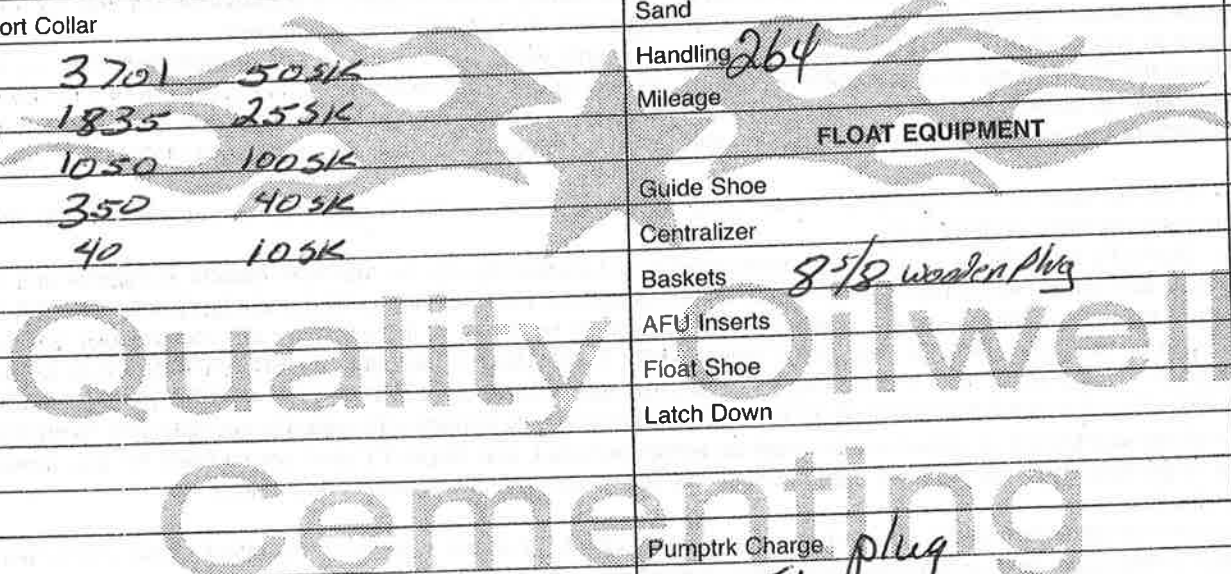 ort Collar
3701 50SK
1835 25SK
1050 100SK
350 40SK
40 10SK
Sand
Handling 264
Mileage
FLOAT EQUIPMENT
Guide Shoe
Centralizer
Baskets 8 5/8 wooden plug
AFU Inserts
Float Shoe
Latch Down
Pumptrk Charge plug
Quality Oilwell
Cementing